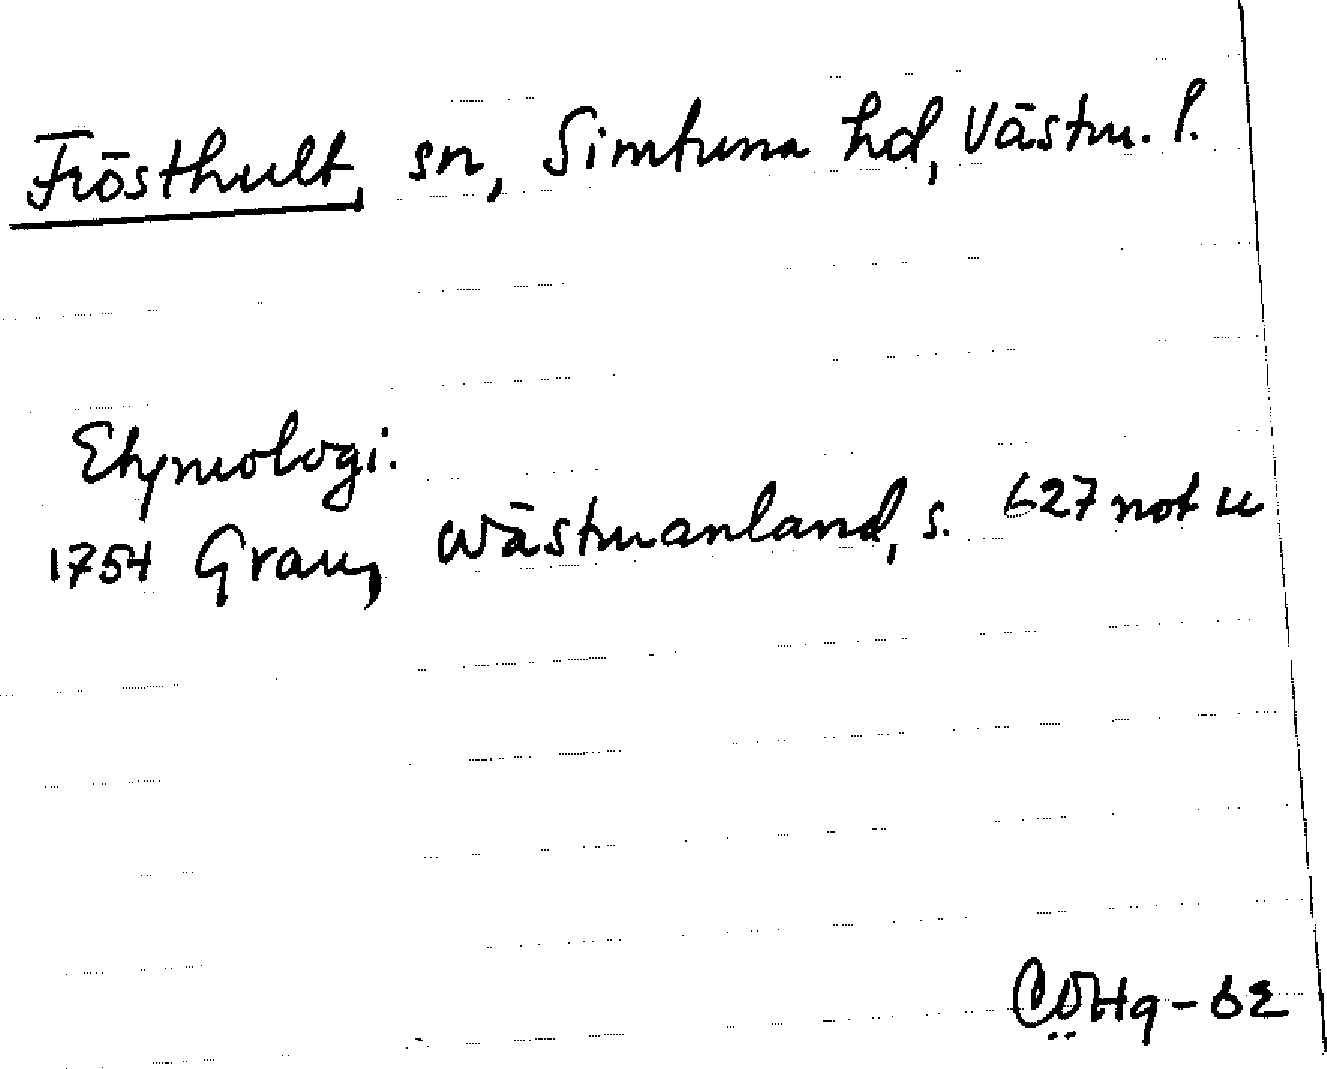 Frösthult, sn, Simtuna hd, Västm. l.
Etymologi:
1754 Grau, Wästmanland, s. 627 not u
CÖHg-62